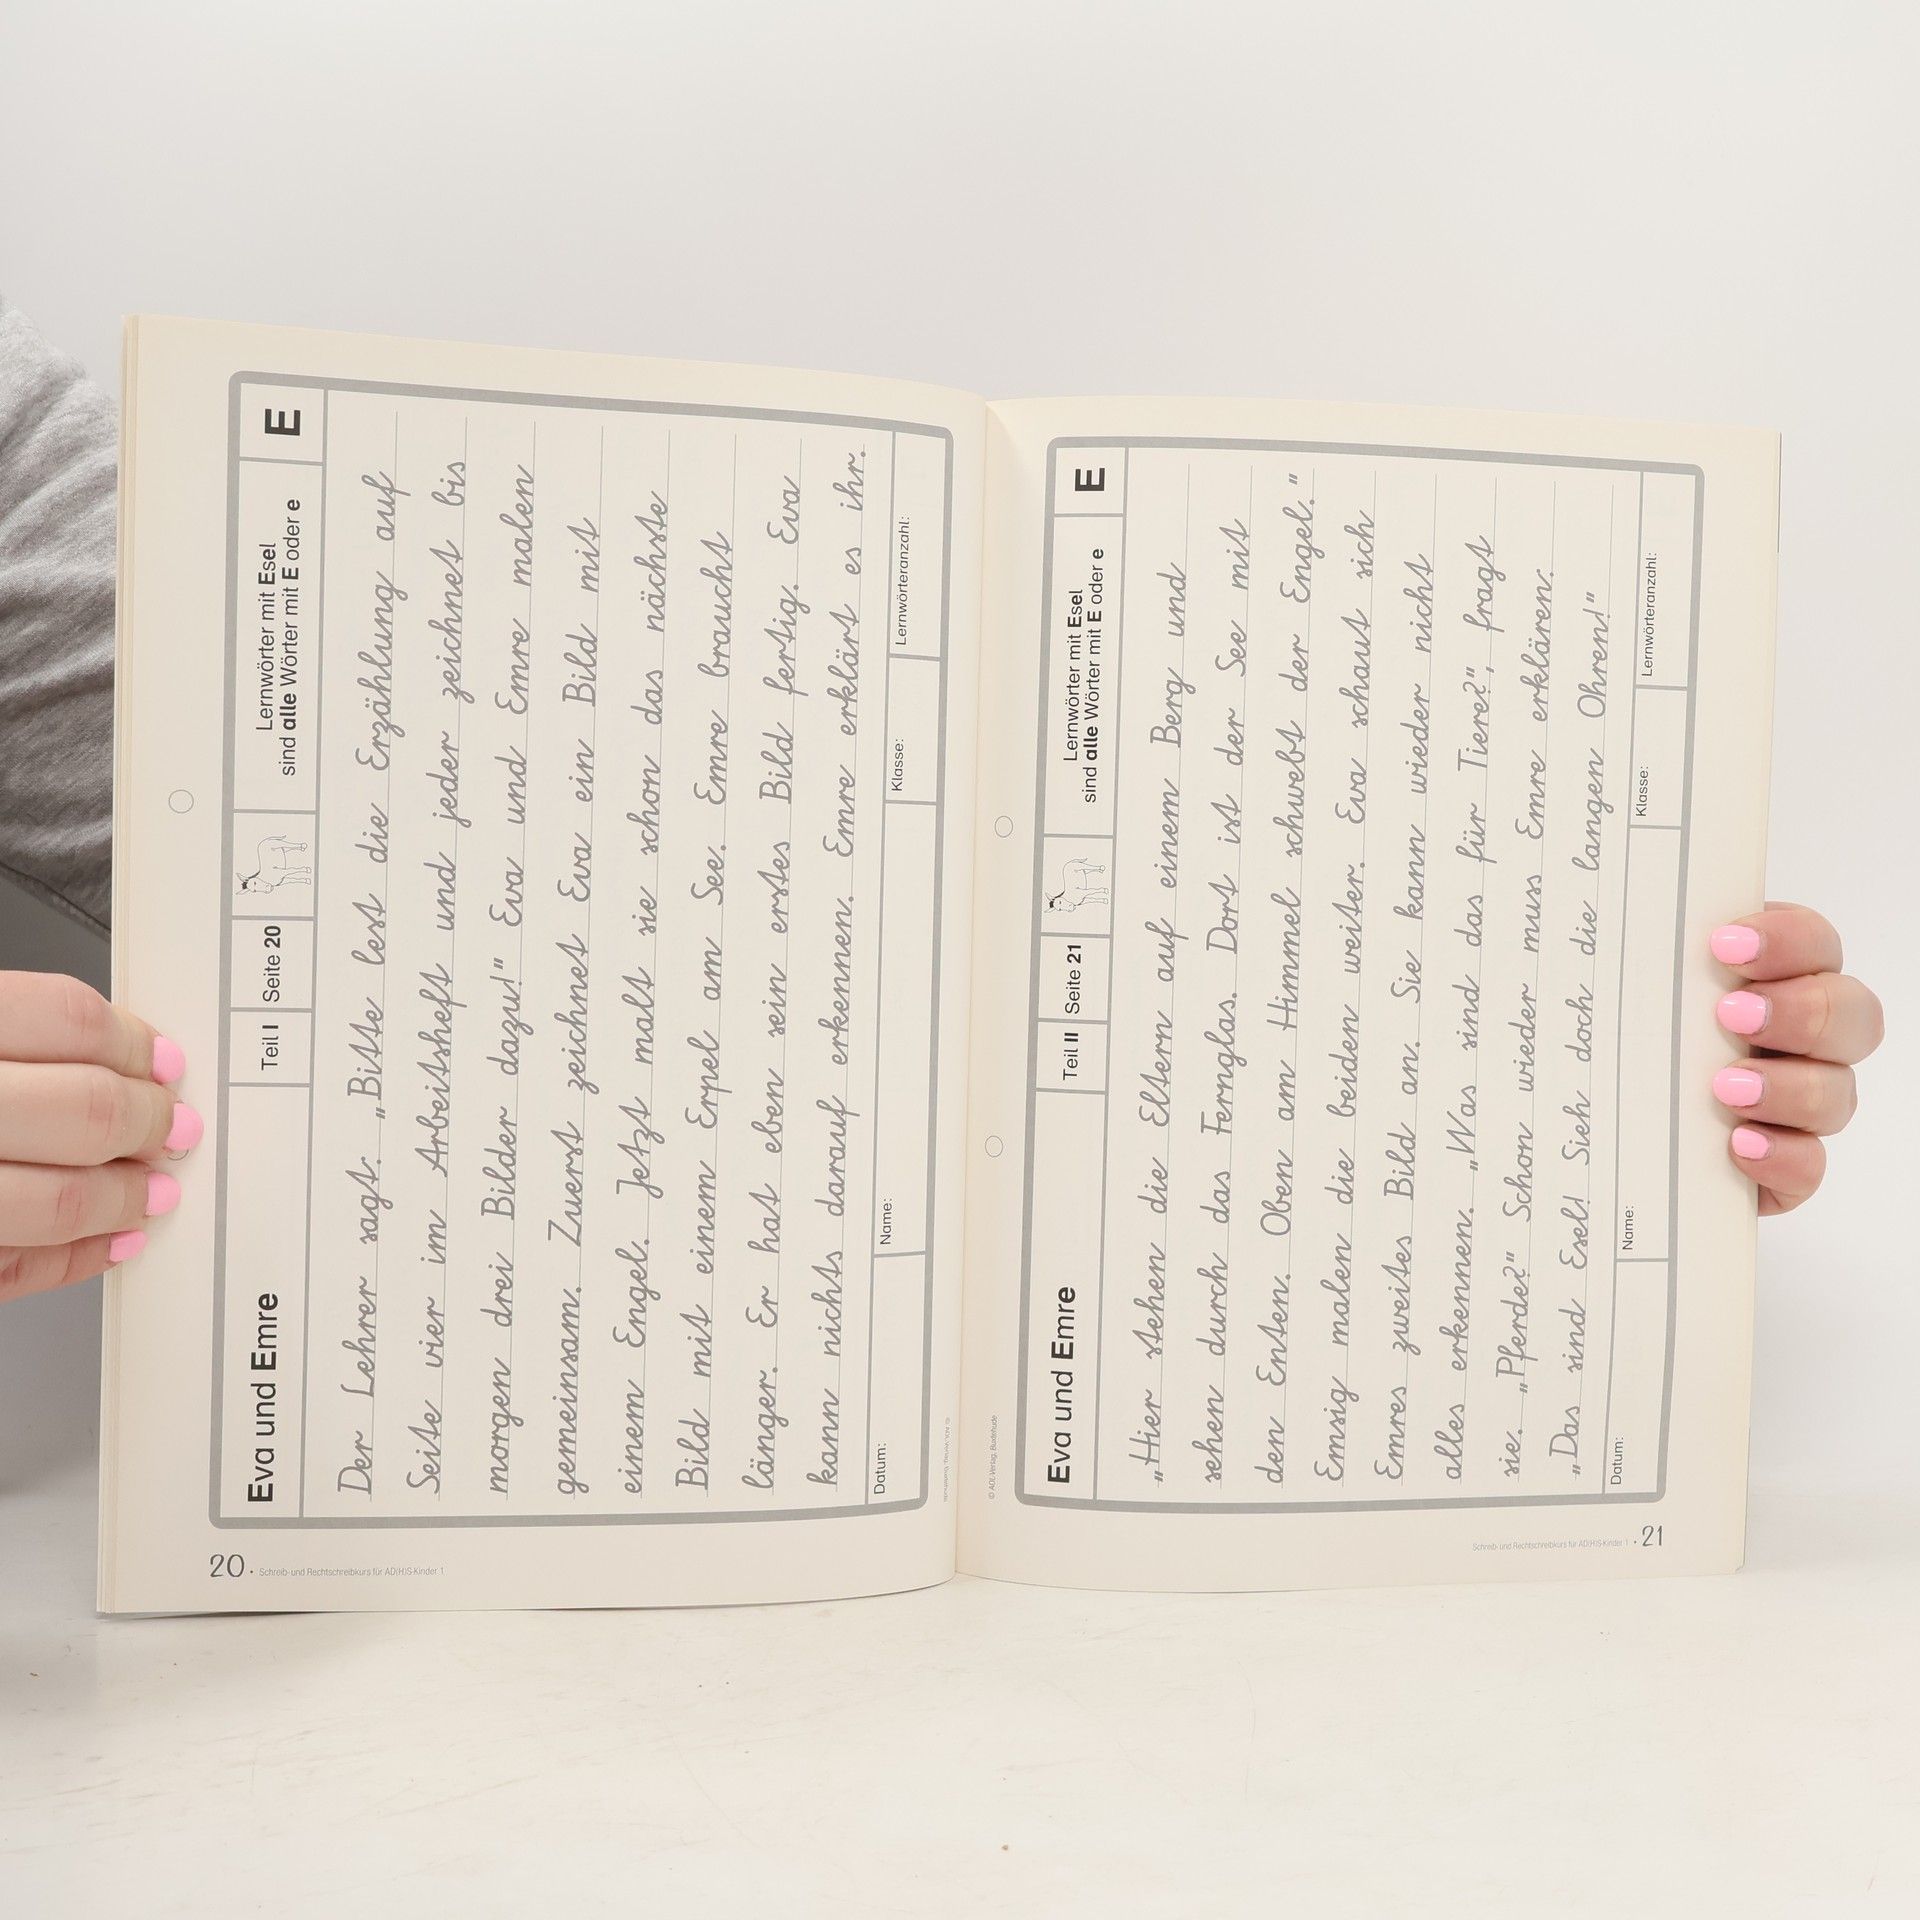 Eva und Emre
Teil I
Seite 20
Lernwörter mit Esel
sind alle Wörter mit E oder e
E
Der Lehrer sagt: „Bitte lest die Erzählung auf
Seite vier im Arbeitsheft und jeder zeichnet bis
morgen drei Bilder dazu!“ Eva und Emre malen
gemeinsam. Zuerst zeichnet Eva ein Bild mit
einem Engel. Jetzt malt sie schon das nächste
Bild mit einem Erpel am See. Emre braucht
länger. Er hat eben sein erstes Bild fertig. Eva
kann nichts darauf erkennen. Emre erklärt es ihr.
Datum:
Name:
Klasse:
Lernwörteranzahl:
20 · Schreib- und Rechtschreibkurs für AD(H)S-Kinder 1
© ADL-Verlag, Buxtehude
Eva und Emre
Teil II
Seite 21
Lernwörter mit Esel
sind alle Wörter mit E oder e
E
„Hier stehen die Eltern auf einem Berg und
sehen durch das Fernglas. Dort ist der See mit
den Enten. Oben am Himmel schwebt der Engel.“
Emsig malen die beiden weiter. Eva schaut sich
Emres zweites Bild an. Sie kann wieder nicht
alles erkennen. „Was sind das für Tiere?“, fragt
sie. „Pferde?“ Schon wieder muss Emre erklären:
„Das sind Esel! Sieh doch die langen Ohren!“
Datum:
Name:
Klasse:
Lernwörteranzahl:
© ADL-Verlag, Buxtehude
Schreib- und Rechtschreibkurs für AD(H)S-Kinder 1 · 21